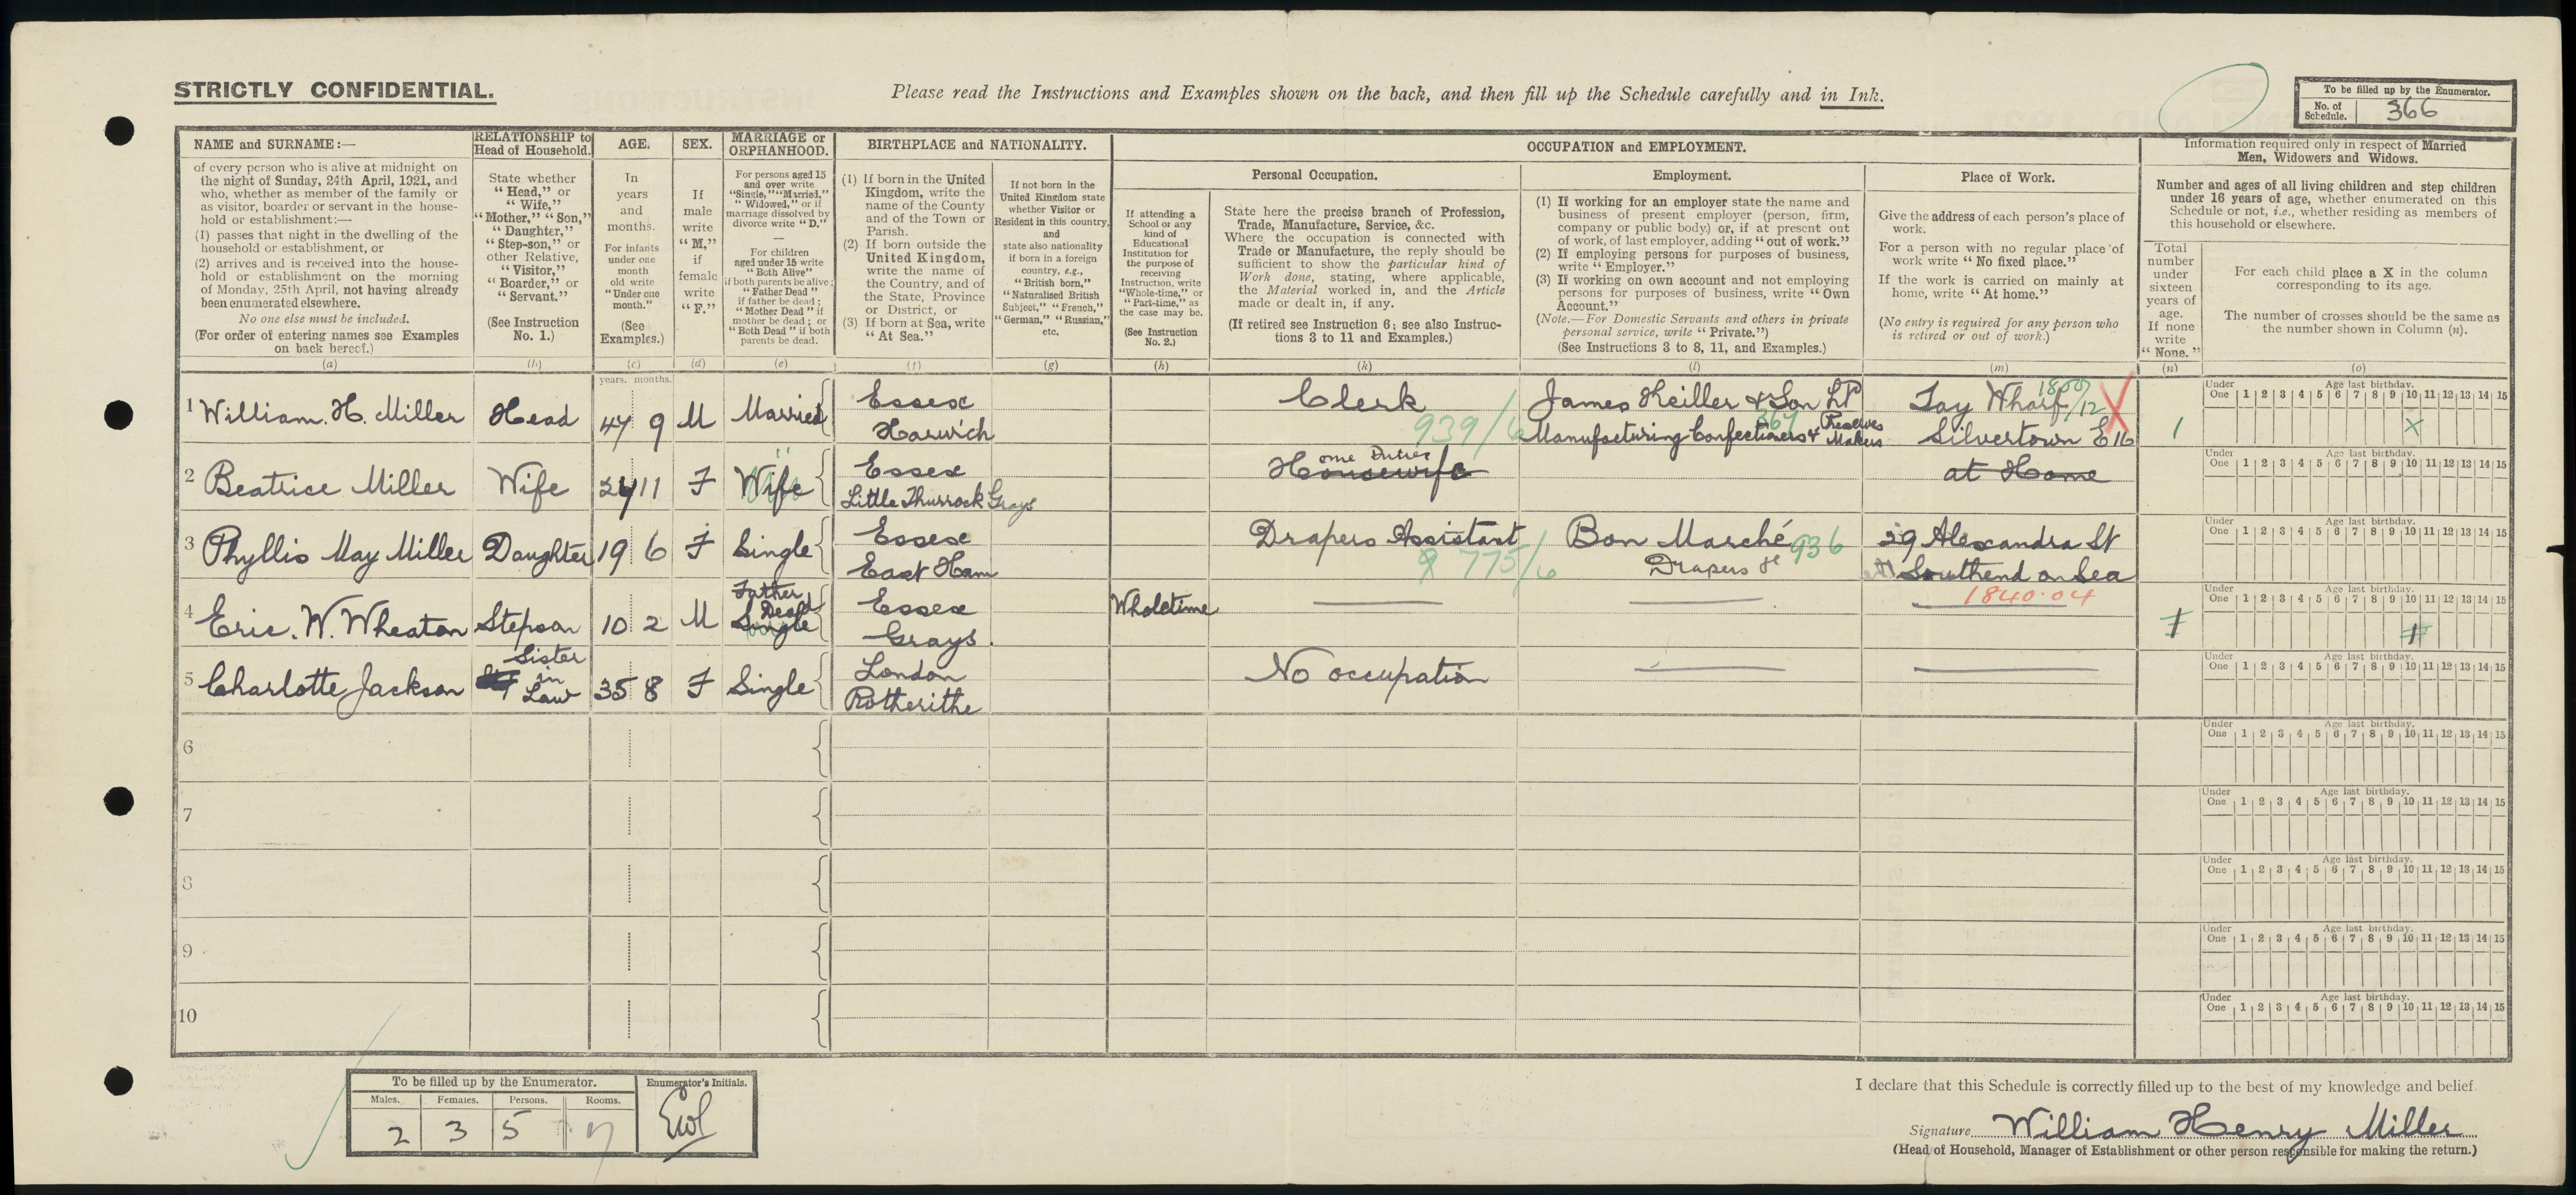 STRICTLY CONFIDENTIAL.
Please read the Instructions and Examples shown on the back, and then fill up the Schedule carefully and in Ink.
To be filled up by the Enumerator.
No. of Schedule. 366
NAME and SURNAME:—
of every person who is alive at midnight on
the night of Sunday, 24th April, 1921, and
who, whether as member of the family or
as visitor, boarder or servant in the house-
hold or establishment:—
(1) passes that night in the dwelling of the
household or establishment, or
(2) arrives and is received into the house-
hold or establishment on the morning
of Monday, 25th April, not having already
been enumerated elsewhere.
No one else must be included.
(For order of entering names see Examples
on back hereof.)
(a)
RELATIONSHIP to
Head of Household.
State whether
"Head," or
"Wife,"
"Mother," "Son,"
"Daughter,"
"Step-son," or
other Relative,
"Visitor,"
"Boarder," or
"Servant."
(See Instruction
No. 1.)
(b)
AGE.
In
years
and
months.
For infants
under one
month
old write
"Under one
month."
(See
Examples.)
(c)
SEX.
If
male
write
"M,"
if
female
write
"F."
(d)
MARRIAGE or
ORPHANHOOD.
For persons aged 15
and over write
"Single," "Married,"
"Widowed," or if
marriage dissolved by
divorce write "D."
—
For children
aged under 15 write
"Both Alive"
if both parents be alive;
"Father Dead"
if father be dead;
"Mother Dead" if
mother be dead; or
"Both Dead" if both
parents be dead.
(e)
BIRTHPLACE and NATIONALITY.
(1) If born in the United
Kingdom, write the
name of the County
and of the Town or
Parish.
(2) If born outside the
United Kingdom,
write the name of
the Country, and of
the State, Province
or District, or
(3) If born at Sea, write
"At Sea."
(f)
If not born in the
United Kingdom state
whether Visitor or
Resident in this country,
and
state also nationality
if born in a foreign
country, e.g.,
"British born,"
"Naturalised British
Subject," "French,"
"German," "Russian,"
etc.
(g)
OCCUPATION and EMPLOYMENT.
If attending a
School or any
kind of
Educational
Institution for
the purpose of
receiving
Instruction, write
"Whole-time," or
"Part-time," as
the case may be.
(See Instruction
No. 2.)
(h)
Personal Occupation.
State here the precise branch of Profession,
Trade, Manufacture, Service, &c.
Where the occupation is connected with
Trade or Manufacture, the reply should be
sufficient to show the particular kind of
Work done, stating, where applicable,
the Material worked in, and the Article
made or dealt in, if any.
(If retired see Instruction 6; see also Instruc-
tions 3 to 11 and Examples.)
(k)
Employment.
(1) If working for an employer state the name and
business of present employer (person, firm,
company or public body) or, if at present out
of work, of last employer, adding "out of work."
(2) If employing persons for purposes of business,
write "Employer."
(3) If working on own account and not employing
persons for purposes of business, write "Own
Account."
(Note.—For Domestic Servants and others in private
personal service, write "Private.")
(See Instructions 3 to 8, 11, and Examples.)
(l)
Place of Work.
Give the address of each person's place of
work.
For a person with no regular place of
work write "No fixed place."
If the work is carried on mainly at
home, write "At home."
(No entry is required for any person who
is retired or out of work.)
(m)
Information required only in respect of Married
Men, Widowers and Widows.
Number and ages of all living children and step children
under 16 years of age, whether enumerated on this
Schedule or not, i.e., whether residing as members of
this household or elsewhere.
Total
number
under
sixteen
years of
age.
If none
write
"None."
(n)
For each child place a X in the column
corresponding to its age.
The number of crosses should be the same as
the number shown in Column (n).
(o)
years. months.
1 William. H. Miller Head 47 9 M Married Essex Clerk James Keiller & Son Ltd Tay Wharf 1800/12
Harwich 939/6 Manufacturing Confectioners & Preserves Makers 367 Silvertown E16 1 X
Under One Age last birthday. 1 2 3 4 5 6 7 8 9 10 11 12 13 14 15
2 Beatrice Miller Wife 11 F Wife Essex Housewife ome Duties at Home
Little Thurrock Grays
Under One Age last birthday. 1 2 3 4 5 6 7 8 9 10 11 12 13 14 15
3 Phyllis May Miller Daughter 19 6 F Single Essex Drapers Assistant Bon Marché 936 29 Alexandra St
East Ham 775/6 Drapers Southend on Sea
1840.04
Under One Age last birthday. 1 2 3 4 5 6 7 8 9 10 11 12 13 14 15
4 Eric. W. Wheaton Stepson 10 2 M Single Father Dead Essex Wholetime
Grays.
Under One Age last birthday. 1 2 3 4 5 6 7 8 9 10 11 12 13 14 15
5 Charlotte Jackson Sister in Law 35 8 F Single London No occupation
Rotherithe
Under One Age last birthday. 1 2 3 4 5 6 7 8 9 10 11 12 13 14 15
6
Under One Age last birthday. 1 2 3 4 5 6 7 8 9 10 11 12 13 14 15
7
Under One Age last birthday. 1 2 3 4 5 6 7 8 9 10 11 12 13 14 15
8
Under One Age last birthday. 1 2 3 4 5 6 7 8 9 10 11 12 13 14 15
9
Under One Age last birthday. 1 2 3 4 5 6 7 8 9 10 11 12 13 14 15
10
Under One Age last birthday. 1 2 3 4 5 6 7 8 9 10 11 12 13 14 15
To be filled up by the Enumerator.
Males. Females. Persons. Rooms.
2 3 5 7
Enumerator's Initials.
I declare that this Schedule is correctly filled up to the best of my knowledge and belief
Signature William Henry Miller
(Head of Household, Manager of Establishment or other person responsible for making the return.)